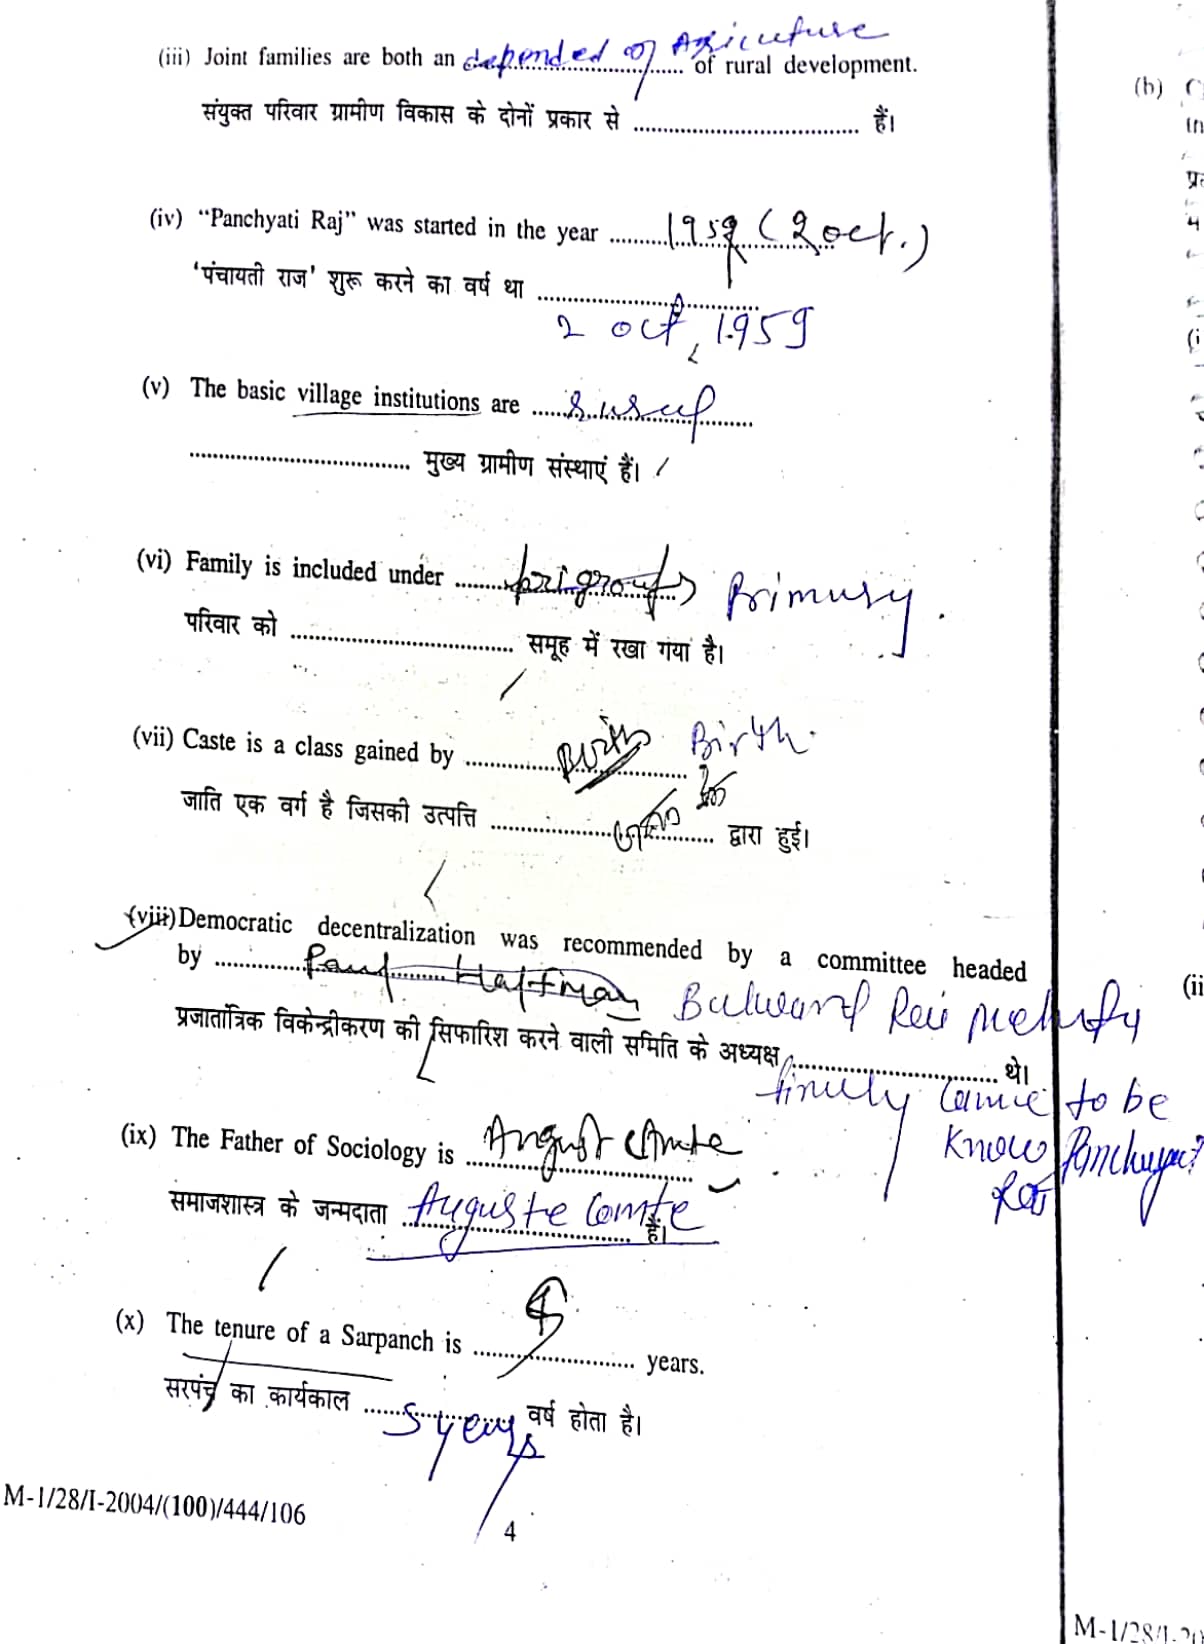 (iii) Joint families are both an depended of Agricuture of rural development.
संयुक्त परिवार ग्रामीण विकास के दोनों प्रकार से .................................... हैं।
(b)
(iv) “Panchyati Raj” was started in the year 1959 (2 oct.)
'पंचायती राज' शुरू करने का वर्ष था ....................................
2 oct, 1959
(v) The basic village institutions are ....................................
.................................... मुख्य ग्रामीण संस्थाएं हैं।
(vi) Family is included under pri groups Primary.
परिवार को .................................... समूह में रखा गया है।
(vii) Caste is a class gained by Birth Birth.
जाति एक वर्ग है जिसकी उत्पत्ति .................................... द्वारा हुई।
(viii) Democratic decentralization was recommended by a committee headed
by Paul Haffman Balwant Rai Mehta
प्रजातांत्रिक विकेन्द्रीकरण की सिफारिश करने वाली समिति के अध्यक्ष .................................... थे।
finuly came to be
know Panchyat
(ix) The Father of Sociology is August Comte
समाजशास्त्र के जन्मदाता Auguste Comte हैं।
(x) The tenure of a Sarpanch is 5 years.
सरपंच का कार्यकाल 5 years वर्ष होता है।
M-1/28/I-2004/(100)/444/106
4
(ii